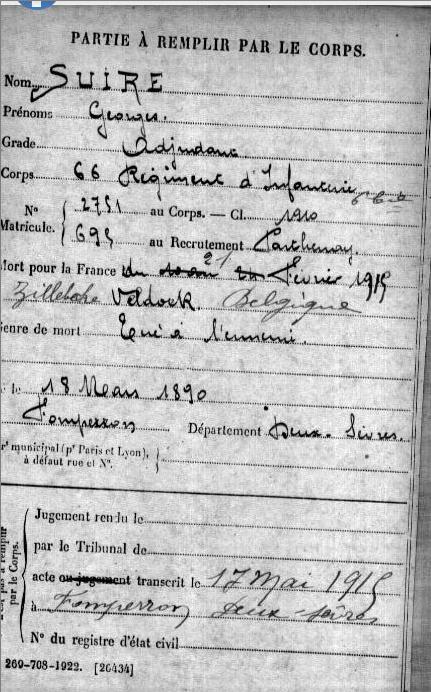 PARTIE À REMPLIR PAR LE CORPS.
Nom SUIRE
Prénoms Georges.
Grade Adjudant
Corps 66 Régiment d'Infanterie
N° Matricule. { 2751 au Corps. — Cl. 1910
695 au Recrutement Parthenay
Mort pour la France du 21 Février 1915
Zillebeke Veldoek. Belgique
Genre de mort Tué à l'ennemi.
é le 18 Mars 1890
Fomperron Département Deux-Sèvres.
rt municipal (pr Paris et Lyon), }
à défaut rue et N°.
par le Corps.
Jugement rendu le
par le Tribunal de
acte ou jugement transcrit le 17 Mai 1915
à Fomperron Deux-Sèvres
N° du registre d'état civil
269-708-1922. [26434]